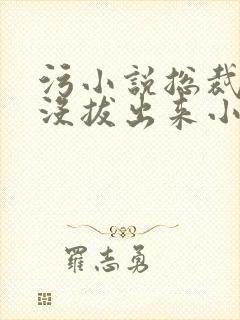 污小说总裁
没拔出来小
羅志勇